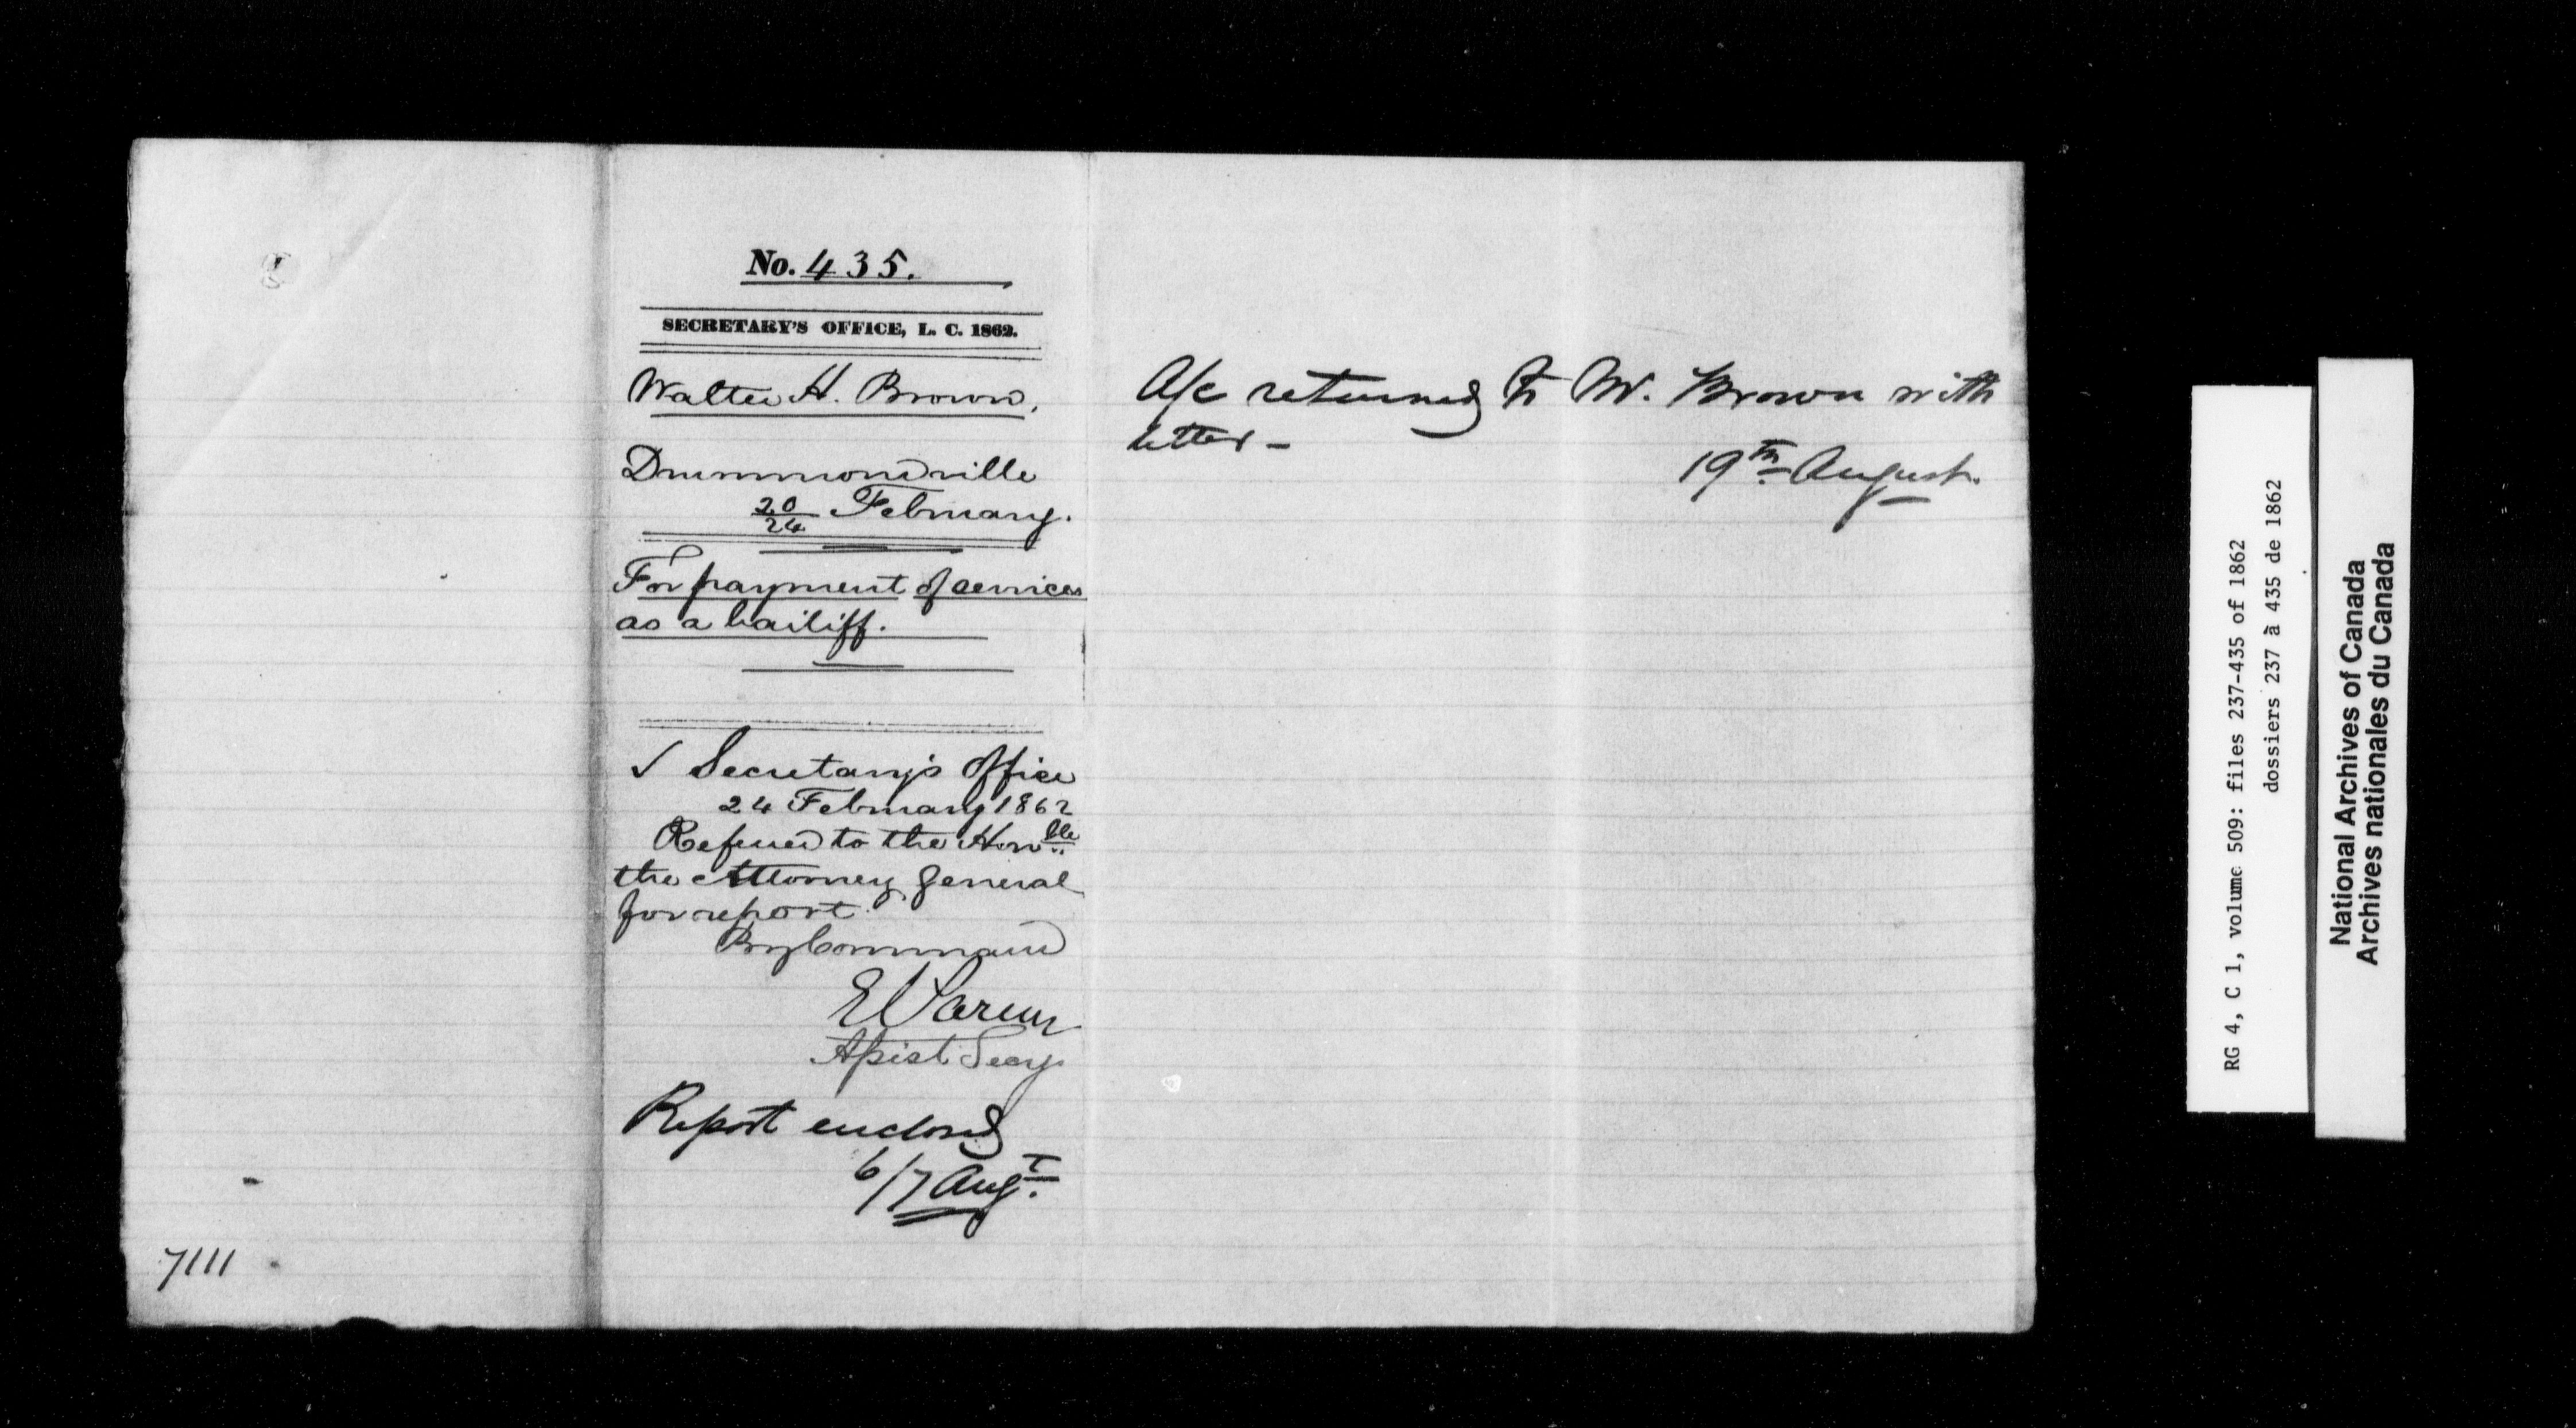 No. 435.
SECRETARY'S OFFICE, L. C. 1862.
Walter H. Brown,
Drummondville
20/24 February.
For payment of services
as a bailiff.
✓ Secretary's Office
24 February 1862
Referred to the Honble
the Attorney General
for report
By Command
E Parent
Assist Secy
Report enclosed
6/7 Augt.
7111
A/c returned to W. Brown with
letter -
19th August.
RG 4, C 1, volume 509: files 237-435 of 1862
dossiers 237 à 435 de 1862
National Archives of Canada
Archives nationales du Canada